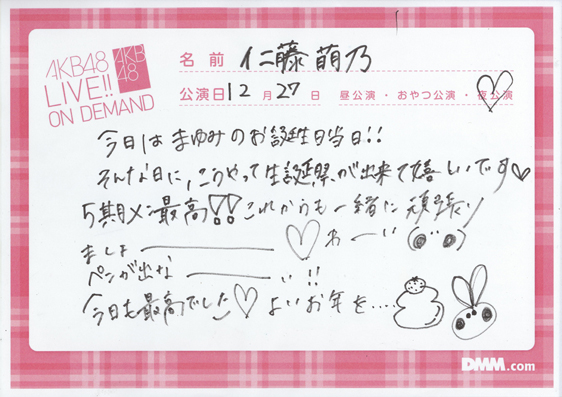 AKB48
LIVE!!
ON DEMAND
AKB
48
名前 仁藤萌乃
公演日 12月27日 昼公演・おやつ公演・夜公演
今日はまゆみのお誕生日当日!!
そんな日に、こうやって生誕祭が出来て嬉しいです♡
5期メン最高!!これからも一緒に頑張り
ましょ――――♡わーい
ペンが出な――――い!!
今日も最高でした♡よいお年を....
DMM.com